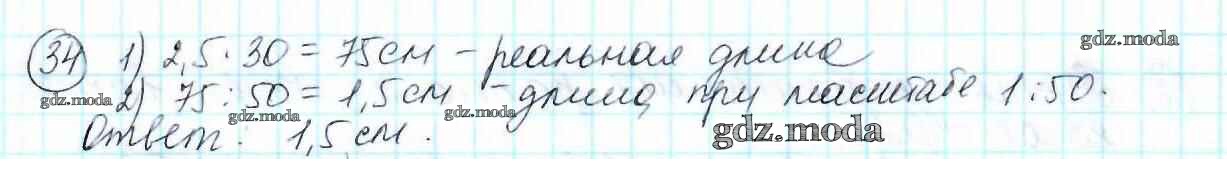 34 1) 2,5·30 = 75 см – реальная длина
gdz.moda
2) 75:50 = 1,5 см – длина при масштабе 1:50.
gdz.moda gdz.moda gdz.moda
Ответ: 1,5 см.
gdz.moda